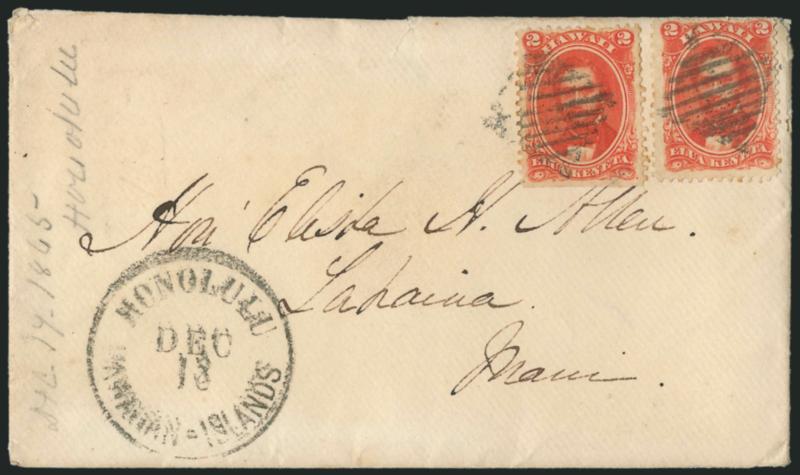 2 HAWAII 2
ELUA KENETA
2 HAWAII 2
ELUA KENETA
Hon' Elisha H. Allen.
Lahaina.
Maui.
HONOLULU
DEC
18
HAWAIIAN-ISLANDS
1865
Honolulu